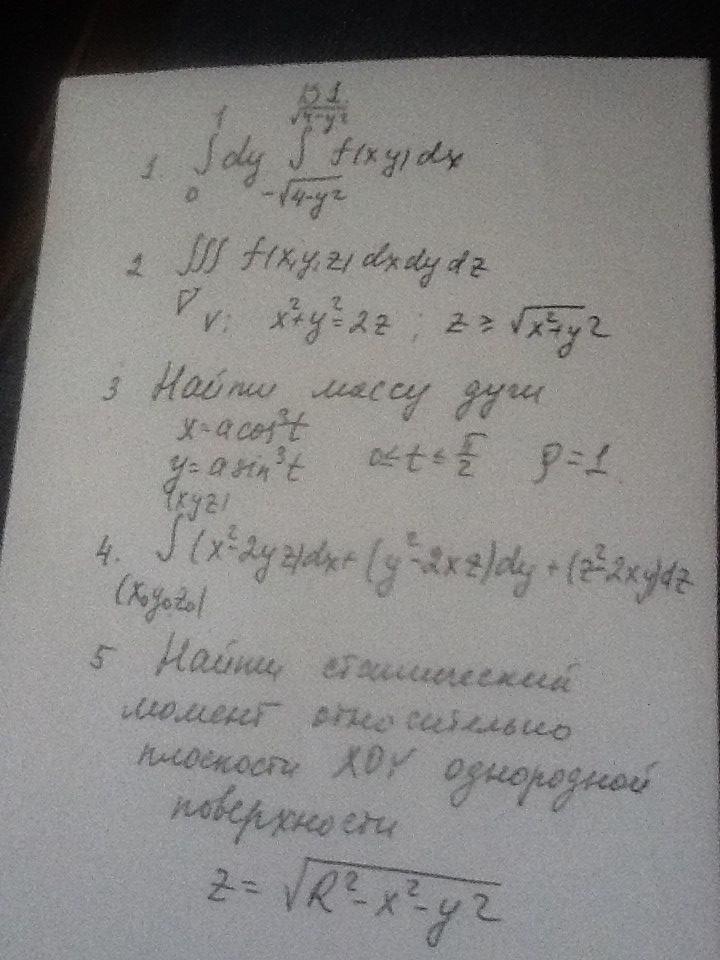 B 1.
1. ∫₀¹ dy ∫_{-√(4-y²)}^{√(4-y²)} f(xy) dx
2 ∭_V f(x,y,z) dx dy dz
V: x²+y²=2z ; z ≥ √(x²+y²)
3 Найти массу дуги
x=a cos³t
y=a sin³t 0≤t≤π/2 ρ=1.
4. ∫_{(x₀y₀z₀)}^{(xyz)} (x²-2yz)dx+(y²-2xz)dy+(z²-2xy)dz
5 Найти статический
момент относительно
плоскости XOY однородной
поверхности
z=√(R²-x²-y²)